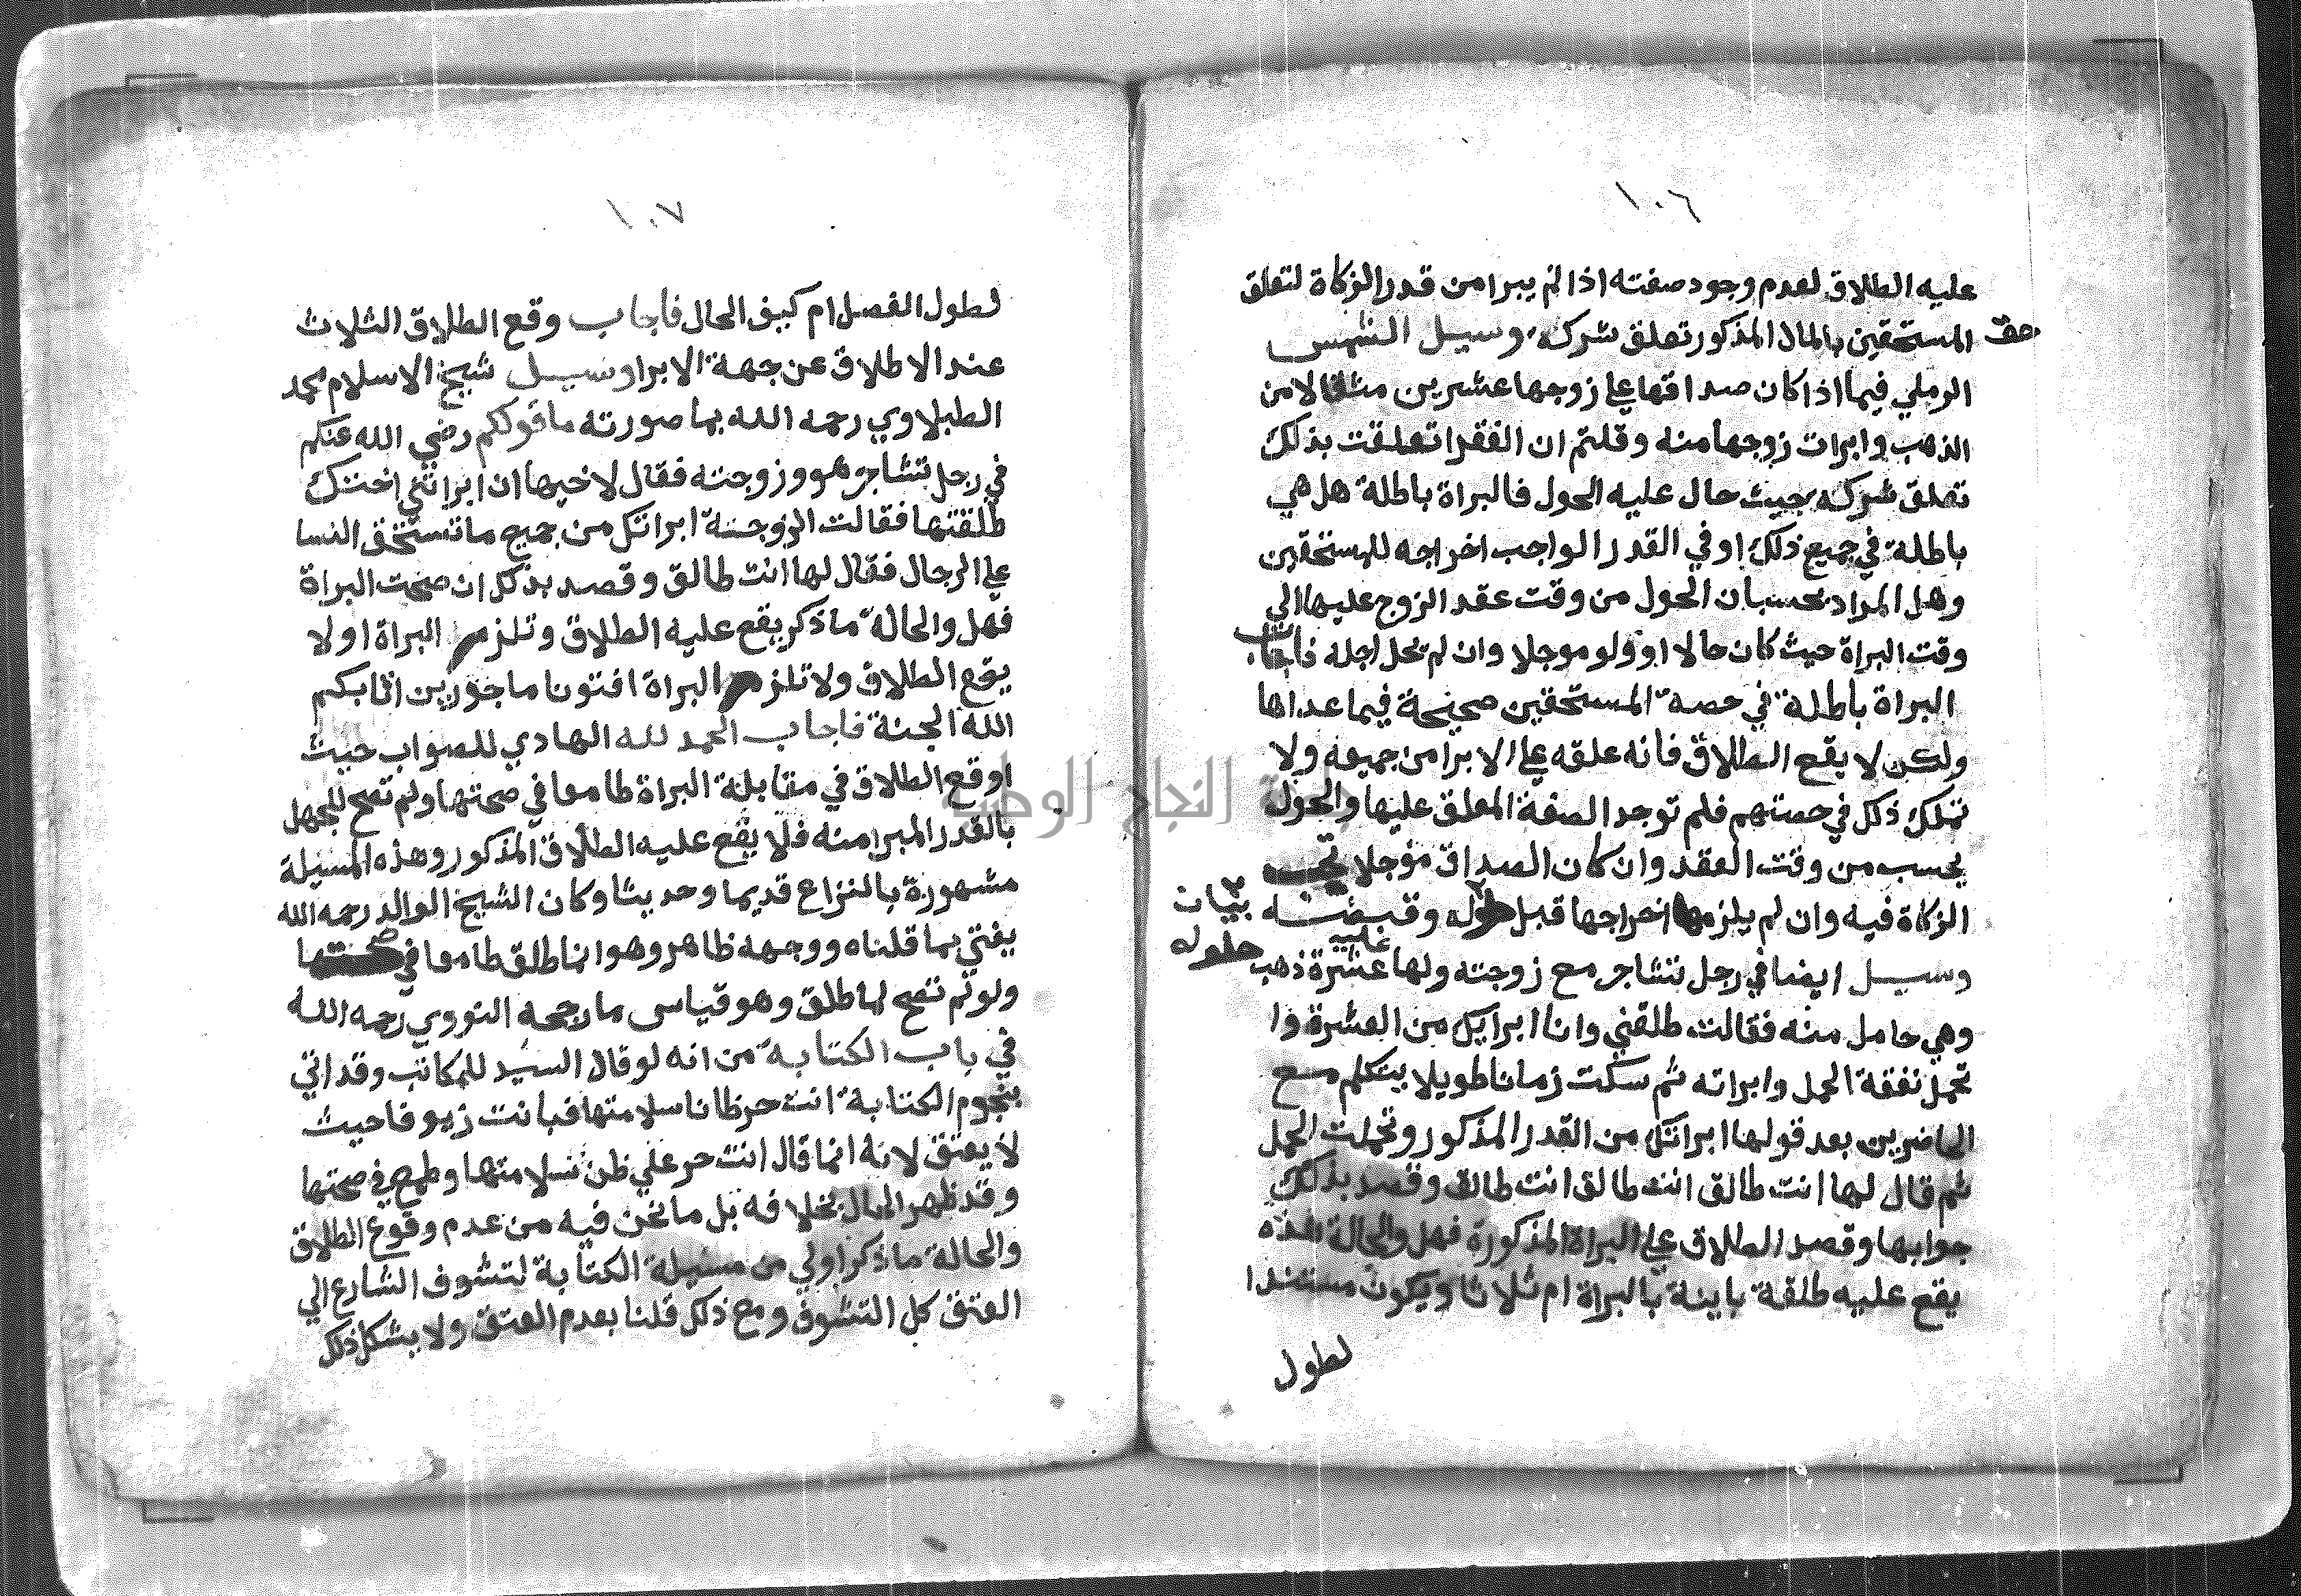 ١٠٦
عليه الطلاق لعدم وجود صفته اذا لم يبرا من قدر الزكاة لتعلق
حق المستحقين بالمال المذكور تعلق شركة وسيل الشمس
الرملي فيما اذا كان صداقها علي زوجها عشرين مثقالا من
الذهب وابرات زوجها منه وقلتم ان الفقرا تعلقت بذلك
تعلق شركة بحيث حال عليه الحول فالبراة باطلة هل هي
باطلة في جميع ذلك او في القدر الواجب اخراجه للمستحقين
وهل المراد بحسبان الحول من وقت عقد الزوج عليها الي
وقت البراة حيث كان حالا او ولو موجلا وان لم يحل اجله فاجاب
البراة باطلة في حصة المستحقين صحيحة فيما عداها
ولكن لا يقع الطلاق فانه علقه علي الابرا من جميعه ولا
تملك ذلك في حصتهم فلم توجد الصفة المعلق عليها والحول
يحسب من وقت العقد وان كان الصداق مؤجلا تجب
الزكاة فيه وان لم يلزمها اخراجها قبل حلوله وقبضه
بيان
حلوله
وسيل ايضا في رجل تشاجر مع زوجته ولها عليه عشرة ذهب
وهي حامل منه فقالت طلقني وانا ابرايك من العشرة وا
تحمل نفقة الحمل وابراته ثم سكت زمانا طويلا يتكلم مع
الحاضرين بعد قولها ابراتك من القدر المذكور وتحملت الحمل
ثم قال لها انت طالق انت طالق انت طالق وقصد بذلك
جوابها وقصد الطلاق علي البراة المذكورة فهل والحالة هذه
يقع عليه طلقة باينة بالبراة ام ثلاثا ويكون مستندا
لطول
١٠٧
لطول الفصل ام كيف الحال فاجاب وقع الطلاق الثلاث
عند الاطلاق عن جهة الابرا وسيل شيخ الاسلام محمد
الطبلاوي رحمه الله بما صورته ما قولكم رضي الله عنكم
في رجل تشاجر هو وزوجته فقال لاخيها ان ابراتني اختك
طلقتها فقالت الزوجة ابراتك من جميع ما تستحق النسا
علي الرجال فقال لها انت طالق وقصد بذلك ان صحت البراة
فهل والحالة ما ذكر يقع عليه الطلاق وتلزم البراة او لا
يقع الطلاق ولا تلزم البراة افتونا ماجورين اثابكم
الله الجنة فاجاب الحمد لله الهادي للصواب حيث
اوقع الطلاق في مقابلة البراة طامعا في صحتها ولم تصح للجهل
بالقدر المبرا منه فلا يقع عليه الطلاق المذكور وهذه المسيلة
مشهورة بالنزاع قديما وحديثا وكان الشيخ الوالد رحمه الله
يفتي بما قلناه ووجهه ظاهر وهو انما طلق طامعا في صحتها
ولو لم تصح لما طلق وهو قياس ما رجحه النووي رحمه الله
في باب الكتابة من انه لو قال السيد للمكاتب وقد اتي
بنجوم الكتابة انت حر ظانا سلامتها فبانت زيوفا حيث
لا يعتق لانه انما قال انت حر علي ظن سلامتها وطمع في صحتها
وقد ظهر الحال بخلافه بل ما نحن فيه من عدم وقوع الطلاق
والحالة ما ذكر اولي من مسيلة الكتابة لتشوف الشارع الي
العتق كل التشوف ومع ذلك قلنا بعدم العتق ولا يشكل ذلك